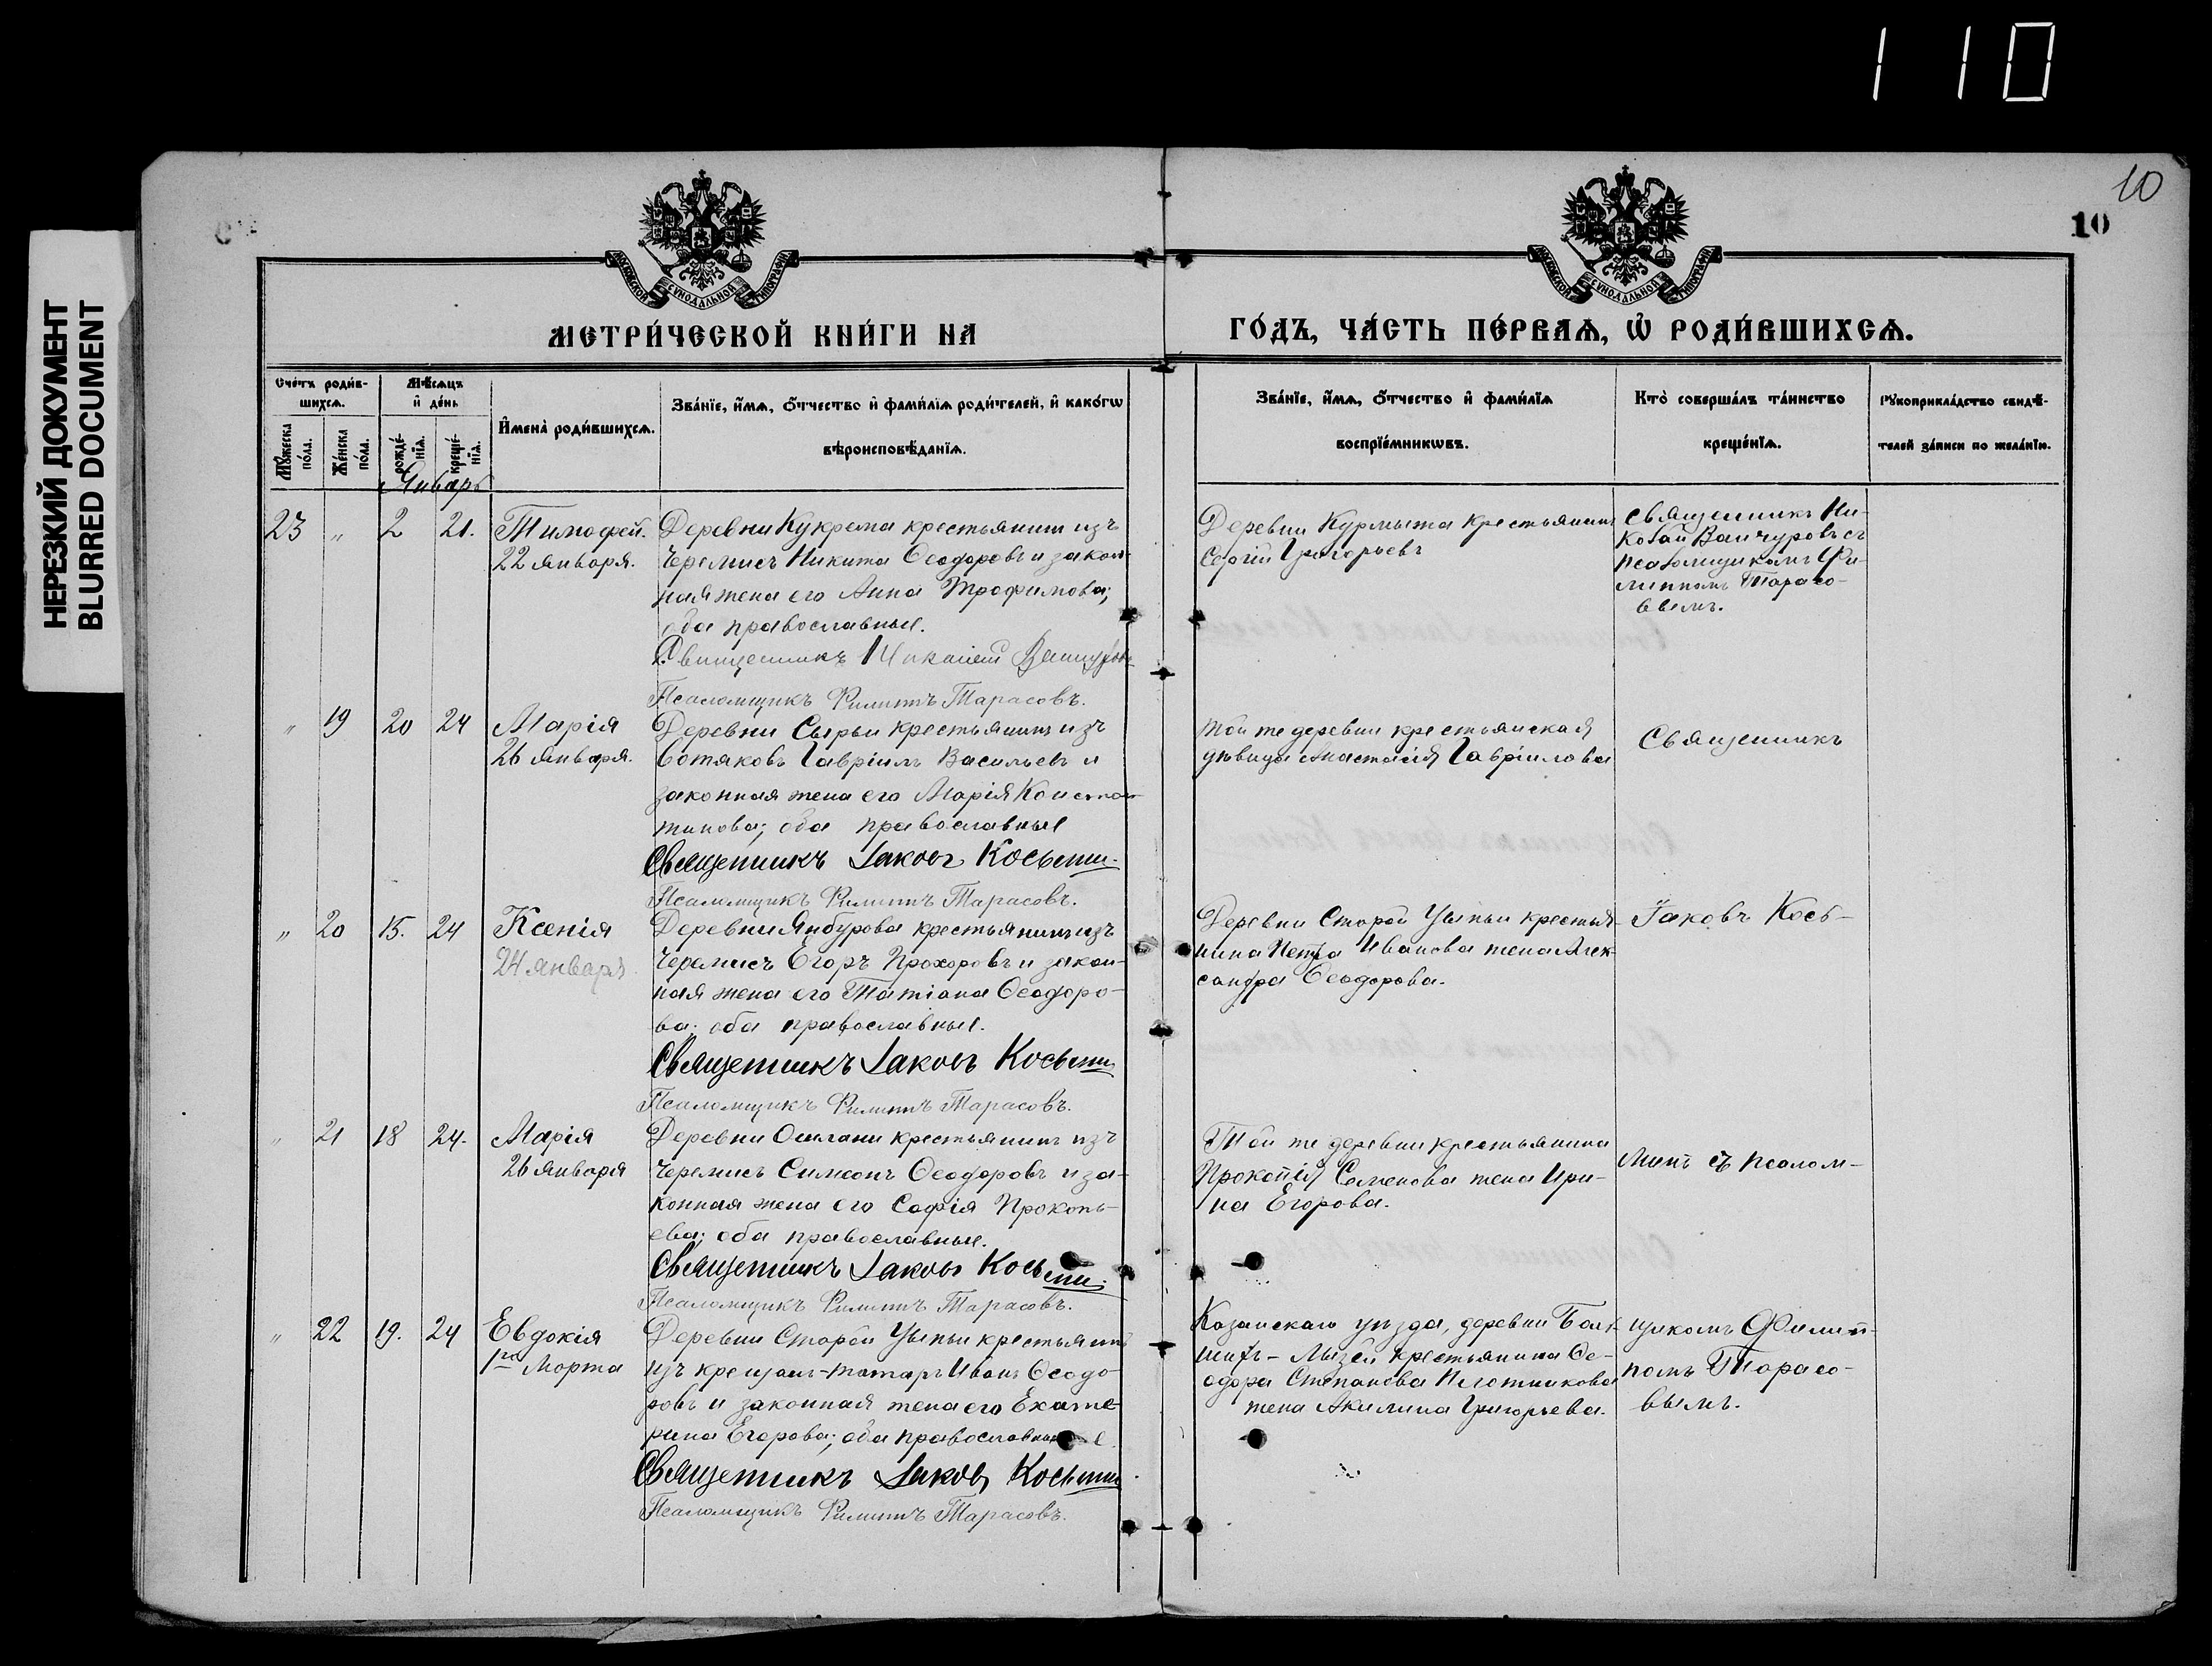 110
НЕРЕЗКИЙ ДОКУМЕНТ
BLURRED DOCUMENT
10
10
МОСКОВСКОЙ СѴНОДАЛЬНОЙ ТИПОГРАФІИ
МОСКОВСКОЙ СѴНОДАЛЬНОЙ ТИПОГРАФІИ
МЕТРИ́ЧЕСКОЙ КНИ́ГИ НА
ГО́ДЪ, ЧА́СТЬ ПЕ́РВАѦ, Ѡ҆ РОДИ́ВШИХСѦ.
Сче́тъ роди́в-
шихсѧ.
Мѣ́сѧцъ
и҆ де́нь
Мꙋ́жеска по́ла.
Же́нска по́ла.
рожде́-
нїѧ.
креще́-
нїѧ.
И҆мена̀ роди́вшихсѧ.
Зва́нїе, и҆́мѧ, ѻ҆́тчество и҆ фами́лїѧ роди́телей, и҆ како́гѡ
вѣроисповѣ́данїѧ.
Зва́нїе, и҆́мѧ, ѻ҆́тчество и҆ фами́лїѧ
воспрїе́мникѡвъ.
Кто̀ соверша́лъ та́инство
креще́нїѧ.
Рꙋкоприкла́дство свидѣ́-
телей за́писи по жела́нїю.
Январь
23 " 2 21. Тимофей.
22 января.
Деревни Кукрема крестьянинъ изъ
Черемисъ Никита Ѳеодоровъ и закон-
ная жена его Анна Трофимова;
оба православные.
Священникъ Николай Ванчуровъ
Псаломщикъ Филиппъ Тарасовъ.
Деревни Курмыта крестьянинъ
Сергій Григорьевъ
Священникъ Ни-
колай Ванчуровъ съ
псаломщикомъ Фи-
липпомъ Тарасо-
вымъ.
" 19 20 24 Марія
26 января.
Деревни Сырьи крестьянинъ изъ
Вотяковъ Гавріилъ Васильевъ и
законная жена его Марія Констан-
тинова; оба православные
Священникъ Іаковъ Косьминъ
Псаломщикъ Филиппъ Тарасовъ.
Той же деревни крестьянская
дѣвица Анастасія Гавріилова
Священникъ
" 20 15. 24 Ксенія
24 января.
Деревни Янбурова крестьянинъ изъ
Черемисъ Егоръ Прохоровъ и закон-
ная жена его Татіана Ѳеодоро-
ва; оба православные.
Священникъ Іаковъ Косьминъ
Псаломщикъ Филиппъ Тарасовъ.
Деревни Старой Уыньи крестья-
нина Петра Иванова жена Алек-
сандра Ѳеодорова.
Іаковъ Кось-
" 21 18 24. Марія
26 января
Деревни крестьянинъ изъ
Черемисъ Симеонъ Ѳеодоровъ и за-
конная жена его Софія Прокопь-
ева; оба православные.
Священникъ Іаковъ Косьминъ
Псаломщикъ Филиппъ Тарасовъ.
Той же деревни крестьянина
Прокопія Семенова жена Ири-
на Егорова.
минъ съ псалом-
" 22 19. 24 Евдокія
1го Марта
Деревни Старой Уыньи крестьянинъ
изъ крещен-татаръ Иванъ Ѳеодо-
ровъ и законная жена его Екате-
рина Егорова; оба православные.
Священникъ Іаковъ Косьминъ
Псаломщикъ Филиппъ Тарасовъ.
Казанскаго уѣзда, деревни
крестьянина Ѳе-
одора Степанова Плотникова
жена Акилина Григорьева.
щикомъ Филип-
помъ Тарасо-
вымъ.